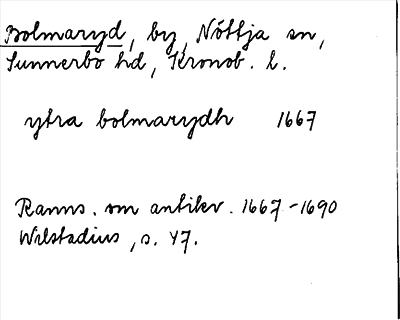 Bolmaryd, by, Nöttja sn,
Sunnerbo hd, Kronob. l.
ytra bolmarydh 1667
Ranns. om antikv. 1667-1690
Wilstadius, s. 47.